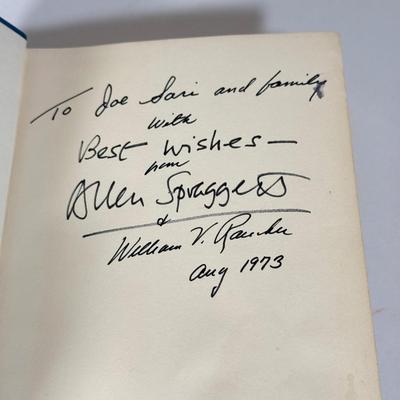 To Joe Sari and family
with
Best wishes —
from
Allen Spraggett
&
William V. Rauscher
Aug 1973